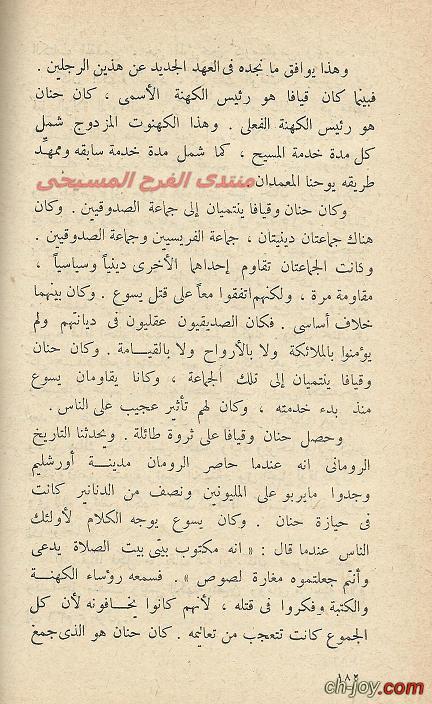 وهذا يوافق ما نجده فى العهد الجديد عن هذين الرجلين .
فبينما كان قيافا هو رئيس الكهنة الأسمى ، كان حنان
هو رئيس الكهنة الفعلى . وهذا الكهنوت المزدوج شمل
كل مدة خدمة المسيح ، كما شمل مدة خدمة سابقه وممهّد
طريقه يوحنا المعمدان .
منتدى الفرح المسيحى
وكان حنان وقيافا ينتميان إلى جماعة الصدوقيين . وكان
هناك جماعتان دينيتان ، جماعة الفريسيين وجماعة الصدوقيين .
وكانت الجماعتان تقاوم إحداهما الأخرى دينياً وسياسياً ،
مقاومة مرة ، ولكنهم اتفقوا معاً على قتل يسوع . وكان بينهما
خلاف أساسى . فكان الصديقيون عقليون فى ديانتهم ولم
يؤمنوا بالملائكة ولا بالأرواح ولا بالقيامة . وكان حنان
وقيافا ينتميان إلى تلك الجماعة ، وكانا يقاومان يسوع
منذ بدء خدمته ، وكان لهم تأثير عجيب على الناس .
وحصل حنان وقيافا على ثروة طائلة . ويحدثنا التاريخ
الرومانى انه عندما حاصر الرومان مدينة أورشليم
وجدوا مايربو على المليونين ونصف من الدنانير كانت
فى حيازة حنان . وكان يسوع يوجه الكلام لأولئك
الناس عندما قال : « انه مكتوب بيتى بيت الصلاة يدعى
وأنتم جعلتموه مغارة لصوص » . فسمعه رؤساء الكهنة
والكتبة وفكروا فى قتله ، لأنهم كانوا يخافونه لأن كل
الجموع كانت تتعجب من تعاليمه . كان حنان هو الذى جمع
١٨٢
ch-joy.com